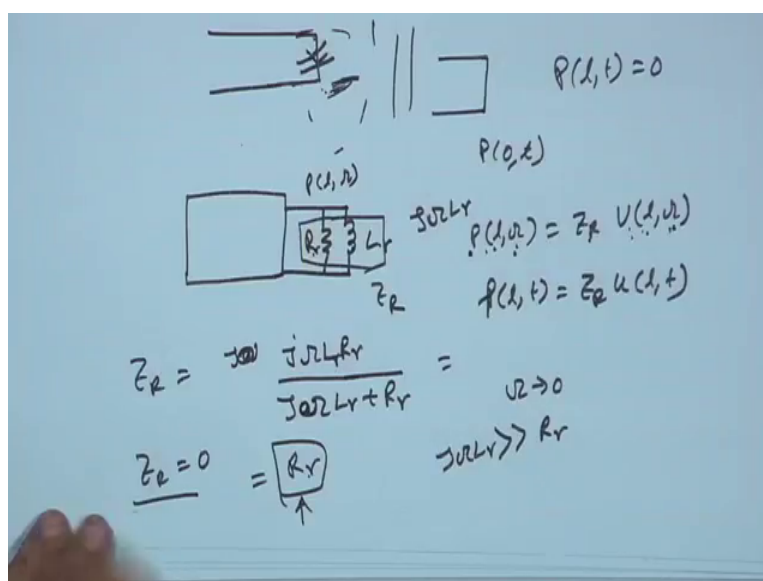 P(l,t) = 0
P(0,t)
P(l,Ω)
Rr Lr
jΩLr
P(l,Ω) = ZR U(l,Ω)
ZR
p(l,t) = ZR u(l,t)
ZR = jΩLrRr / jΩLr + Rr =
Ω → 0
jΩLr >> Rr
ZR = 0 = Rr